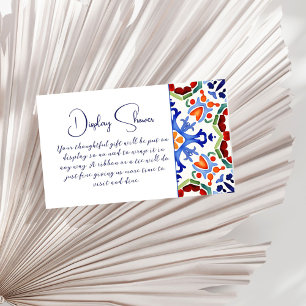 Display Shower
Your thoughtful gift will be put on
display so no need to wrap it in
any way. A ribbon or a tie will do
just fine giving us more time to
visit and dine